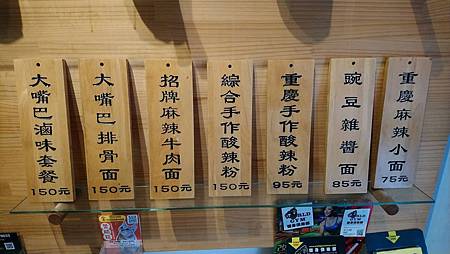 大嘴巴滷味套餐
150元
大嘴巴排骨面
150元
招牌麻辣牛肉面
150元
綜合手作酸辣粉
150元
重慶手作酸辣粉
95元
豌豆雜醬面
85元
重慶麻辣小面
75元
WORLD
GYM